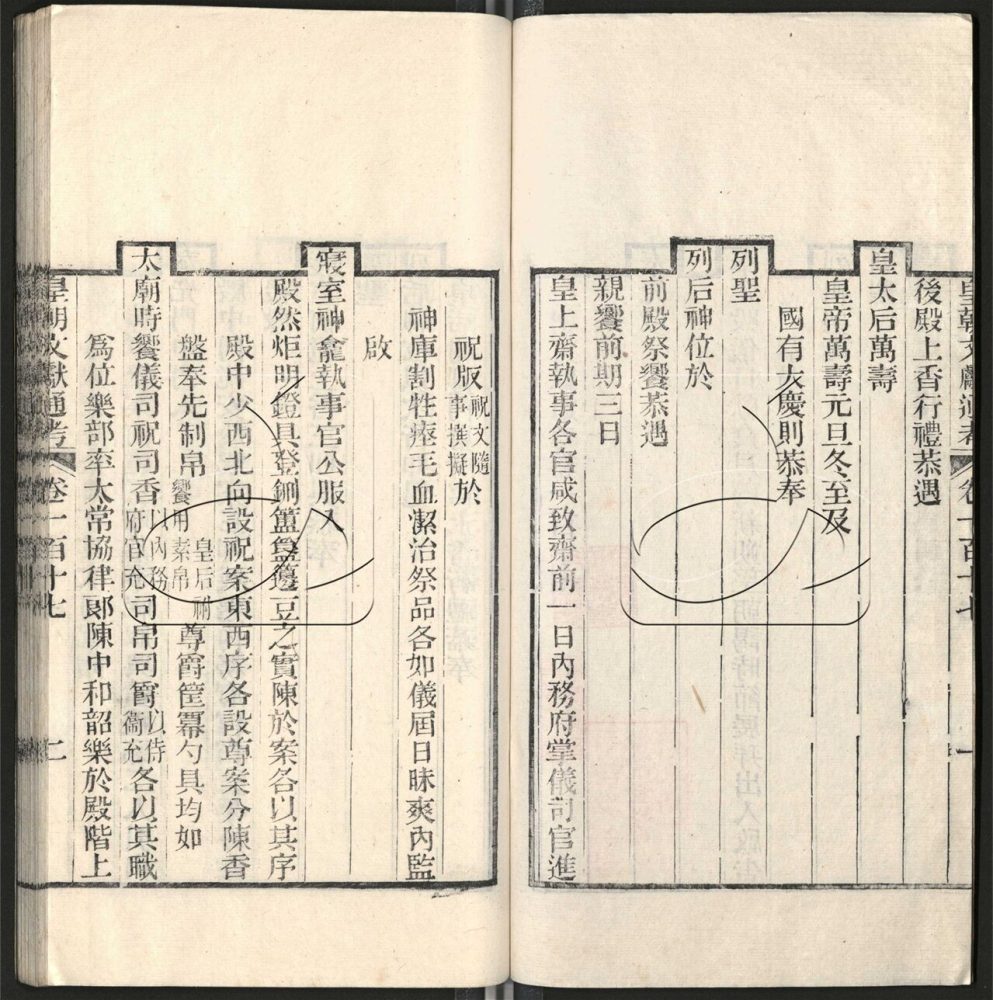 皇朝文獻通考 卷一百十七 一
後殿上香行禮恭遇
皇太后萬壽
皇帝萬壽元旦冬至及
國有大慶則恭奉
列聖
列后神位於
前殿祭饗恭遇
親饗前期三日
皇上齋執事各官咸致齋前一日內務府堂儀司官進
祝版祝文隨事撰擬於
神庫割牲瘞毛血潔治祭品各如儀屆日昧爽內監
啟
寢室神龕執事官公服入
殿然炬明鐙具登鉶簠簋籩豆之實陳於案各以其序
殿中少西北向設祝案東西序各設尊案分陳香
盤奉先制帛皇后祔饗用素帛尊爵篚冪勺具均如
太廟時饗儀司祝司香以內務府官充司帛司爵以侍衞充各以其職
為位樂部率太常協律郞陳中和韶樂於殿階上
皇朝文獻通考 卷一百十七 二